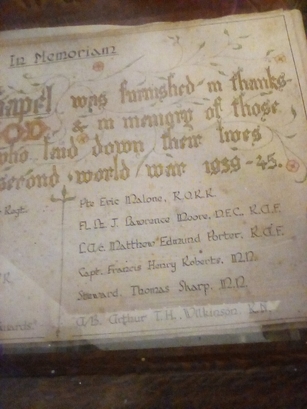 In Memoriam
hapel was furnished in thanks-
OD & in memory of those
who laid down their lives
second world war 1939-45.
Regt.
Pte Eric Malone,
Fl. Lt. J. Lawrence Moore, D.F.C., R.A.F.
L.A.C. Matthew Edmund Porter, R.A.F.
Capt. Francis Henry Roberts, M.N.
Steward, Thomas Sharp, M.N.
A/B. Arthur T.H. Wilkinson, R.N.